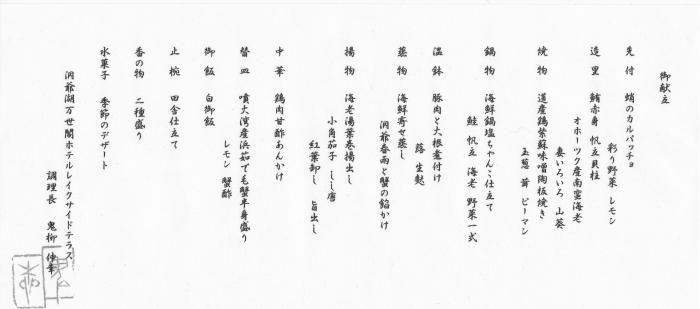 御献立
先付 蛸のカルパッチョ
彩り野菜 レモン
造里 鮪赤身 帆立貝柱
オホーツク産南蛮海老
妻いろいろ 山葵
焼物 道産鶏紫蘇味噌陶板焼き
玉葱 茸 ピーマン
鍋物 海鮮鍋塩ちゃんこ仕立て
鮭 帆立 海老 野菜一式
温鉢 豚肉と大根煮付け
蕗 生麩
蒸物 海鮮寄せ蒸し
洞爺春雨と蟹の餡かけ
揚物 海老湯葉巻揚出し
小角茄子 しし唐
紅葉卸し 旨出し
中華 鶏肉甘酢あんかけ
替皿 噴火湾産浜茹で毛蟹半身盛り
レモン 蟹酢
御飯 白御飯
止椀 田舎仕立て
香の物 二種盛り
水菓子 季節のデザート
洞爺湖万世閣ホテルレイクサイドテラス
調理長 鬼柳 仲幸